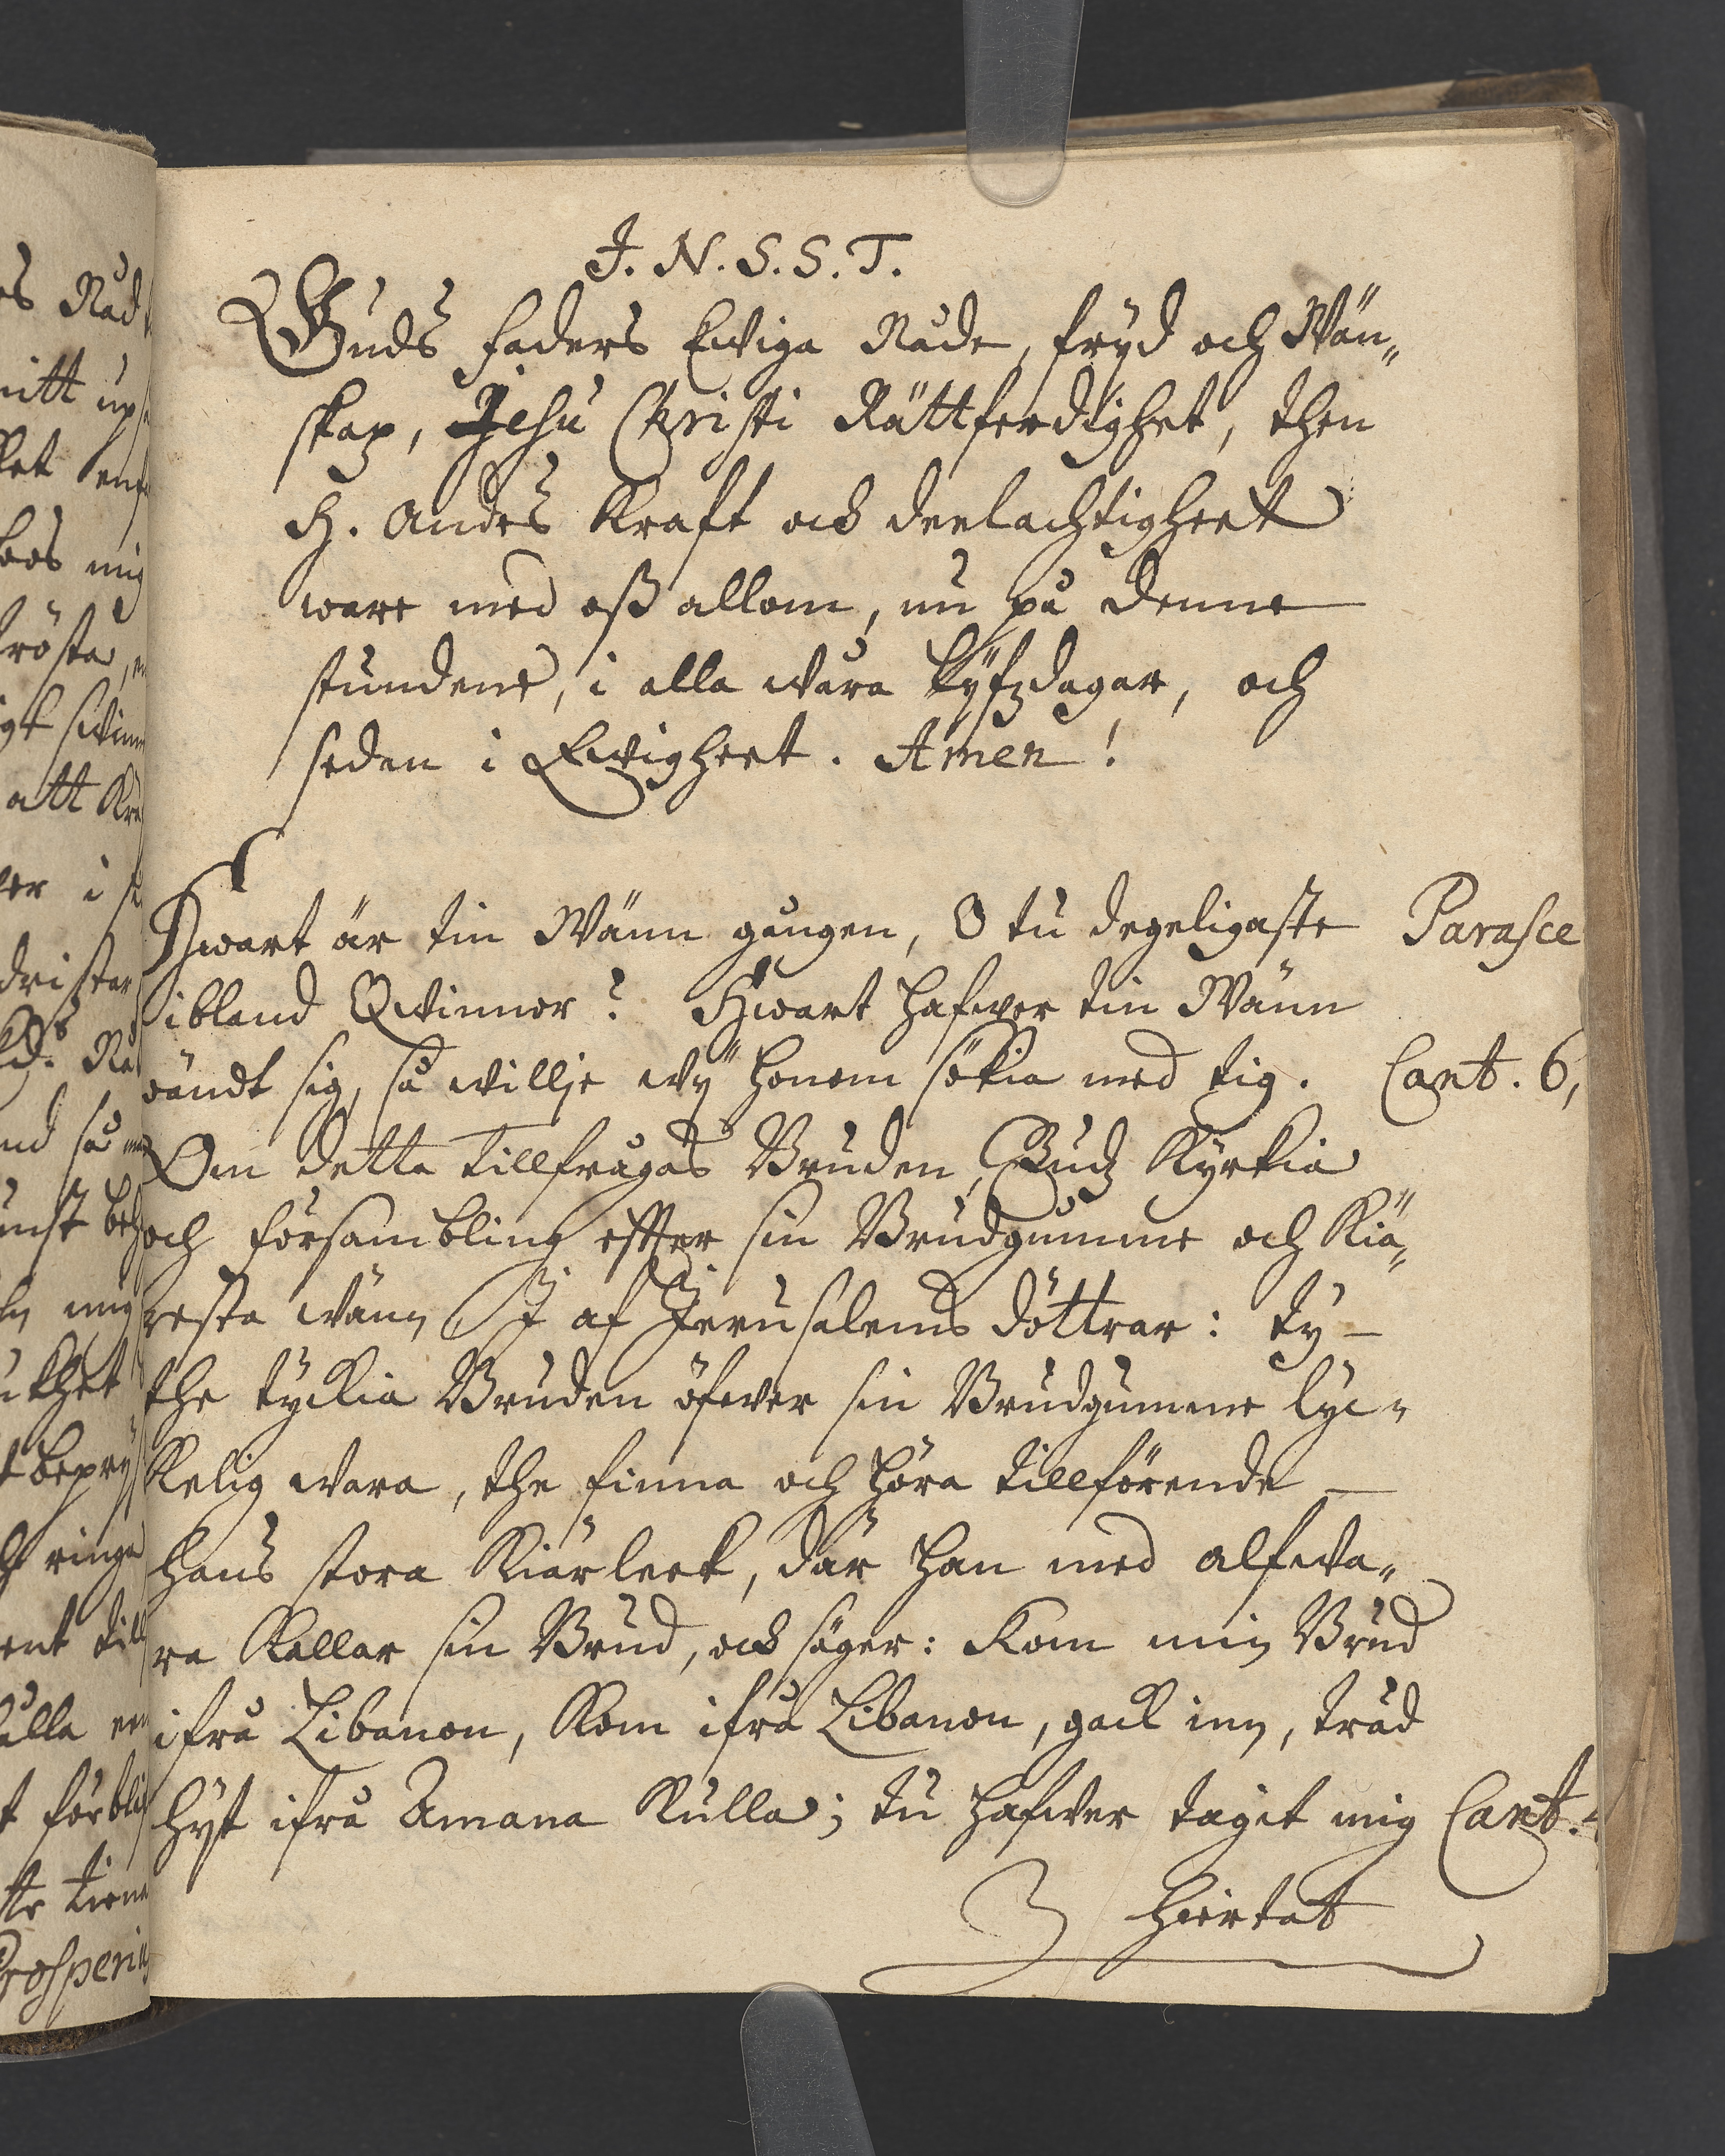 J. N. S. S. T.
Guds Faders Ewiga Nåde, frijd och Wän„
skap, Jesu Christi Rättferdighet, then
H. Andes Kraft ock deelachtigheet
ware med oß allom, nu på denne
stundene, i alla wåra lÿfzdagar, och
sedan i Ewigheet. Amen!
Hwart är tin Wänn gången, O tu degeligaste
Parasce
ibland Qwinnor? Hwart hafwer tin Wänn
wändt sig, så willje wÿ honom sökia med tig.
Cant. 6,
Om detta tillfrågas Bruden, Gudz Kyrkia
och försambling effter sin Brudgumme och Kiä„
resta wänn af Jerusalems döttrar: ty
the tyckia Bruden öfwer sin Brudgumme lyc„
kelig wara, the finna och höra tillförende
hans stora Kiärleek, där han med alfwa„
ra Kallar sin Brud, ock säger: Kom min Brud
ifrå Libanon, Kom ifrå Libanon, gack inn, träd
hijt ifrå Amana Kulla; tu hafwer tagit mig
Cant.
hiertat